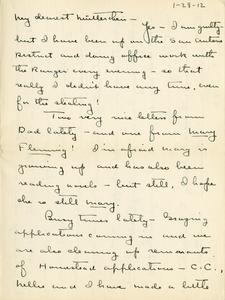 1-28-12
My dearest Mütterchen -
Yes - I am guilty
but I have been up on the San Antone
District and doing office work with
the Ranger every evening - so that
really I didn't have any time, even
for the stealing!
Two very nice letters from
Dad lately - and one from Mary
Fleming! I'm afraid Mary is
growing up and has also been
reading novels - but still, I hope
she is still Mary.
Busy times lately - Grazing
applications coming in and we
are also cleaning up remnants
of Homestead applications - C.C.,
Nellie and I have made a little